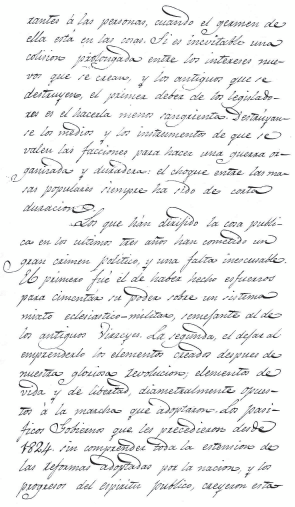 rantes á las personas, cuando el germen de
ella está en las cosas. Si es inevitable una
colision prolongada entre los intereses nue-
vos que se crean, y los antiguos que se
destruyen, el primer deber de los legislado-
res es el hacerla menos sangrienta. Destruyan-
se los medios y los instrumentos de que se
valen las facciones para hacer una guerra or-
ganizada y duradera: el choque entre las ma-
sas populares siempre ha sido de corta
duracion.
Los que han dirijido la cosa publi-
ca en los ultimos tres años han cometido un
gran crimen politico, y una falta inescusable.
El primero fué el de haber hecho esfuerzos
para cimentar su poder sobre un sistema
misto eclesiastico-militar, semejante al de
los antiguos Vireyes. La segunda, el dejar al
emprenderlo los elementos creados despues de
nuestra gloriosa revolucion; elementos de
vida y de libertad, diametralmente opues-
tos á la marcha que adoptaron. Los pasi-
ficos Gobiernos que les precedieron desde
1824. sin comprender toda la estension de
las reformas adoptadas por la nacion, y los
progresos del espiritu publico, creyeron esta-